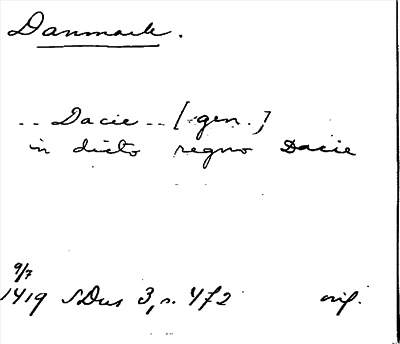 Danmark.
-- Dacie -- [gen.]
in dicto regno Dacie
9/7
1419 SDns 3, s. 472 orig.